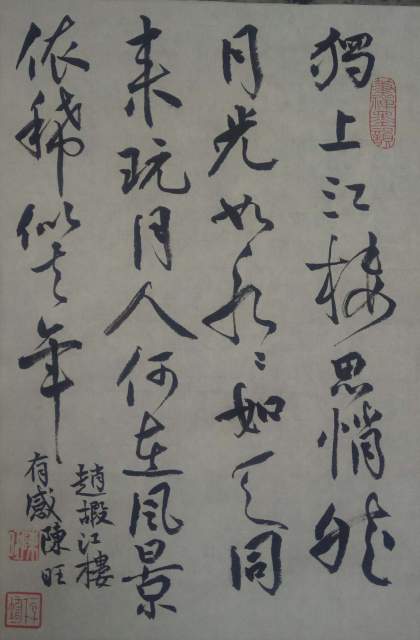 獨上江樓思悄然
月光如水〻如天同
来玩月人何在风景
依稀似去年
趙嘏江樓
有感陳旺